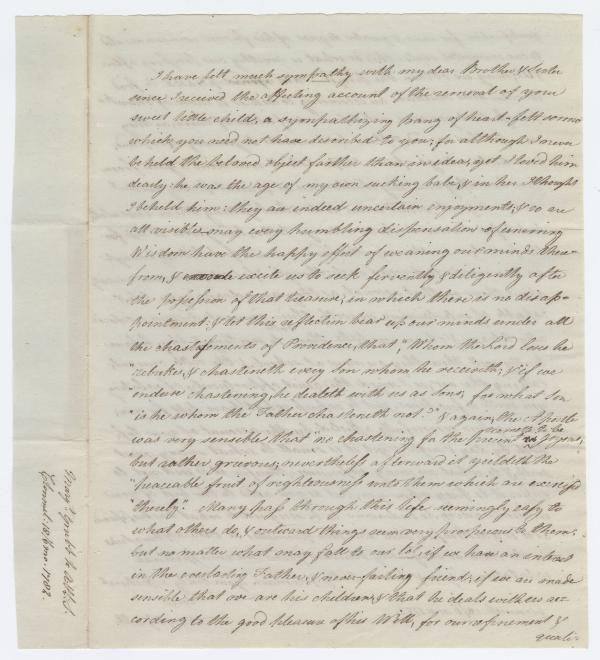 I have felt much sympathy with my dear Brother & Sister
since I received the affecting account of the removal of your
sweet little child, a sympathizing pang of heart-felt sorrow
which you need not have described to you; for although I never
beheld the beloved object farther than in idea, yet I loved him
dearly: he was the age of my own sucking babe, & in her I thought
I beheld him: they are indeed uncertain enjoyments, & so are
all visibles may every humbling dispensation of unerring
Wisdom have the happy effect of weaning our minds there-
from, & excite us to seek fervently & diligently after
the possession of that treasure; in which there is no disap-
pointment: & let this reflection bear up our minds under all
the chastisements of Providence, that, "Whom the Lord loves he
"rebukes, & chasteneth every son whom he receiveth; & if we
"endure chastening, he dealeth with us as sons; for what son
"is he whom the Father chasteneth not?" & again, the Apostle
was very sensible that "no chastening for the present seemeth to be joyous,
"but rather grievous; nevertheless afterward it yieldeth the
"peaceable fruit of righteousness unto them which are exercised
"thereby." Many pass through this life seemingly easy to
what others do, & outward things seem very prosperous to them;
but no matter what may fall to our lot, if we have an interest
in the everlasting Father, & never-failing friend; if we are made
sensible that we are his children, & that he deals with us ac-
cording to the good pleasure of his Will, for our refinement &
Mary
1782.